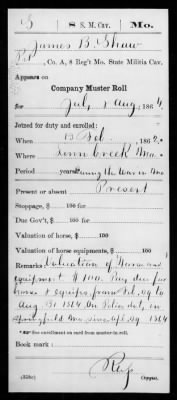 S | 8 S. M. Cav. | Mo.
James B. Shaw
Pvt, Co. A, 8 Reg't Mo. State Militia Cav.
Appears on
Company Muster Roll
for July & Aug, 1864.
Joined for duty and enrolled:
When 13 Feb., 1862.
Where Linn Creek Mo.
Period During the War in Mo years
Present or absent Present
Stoppage, $ 100 for
Due Gov't, $ 100 for
Valuation of horse, $ 100
Valuation of horse equipments, $ 100
Remarks: Valuation of Horse and
equipment $100. Pay due for
horse & equipts from Feb. 29 to
Aug. 31 1864. On Police dut. in
Springfield Mo. since 1864
*See enrollment on card from muster-in roll.
Book mark:
(358c) Copyist.